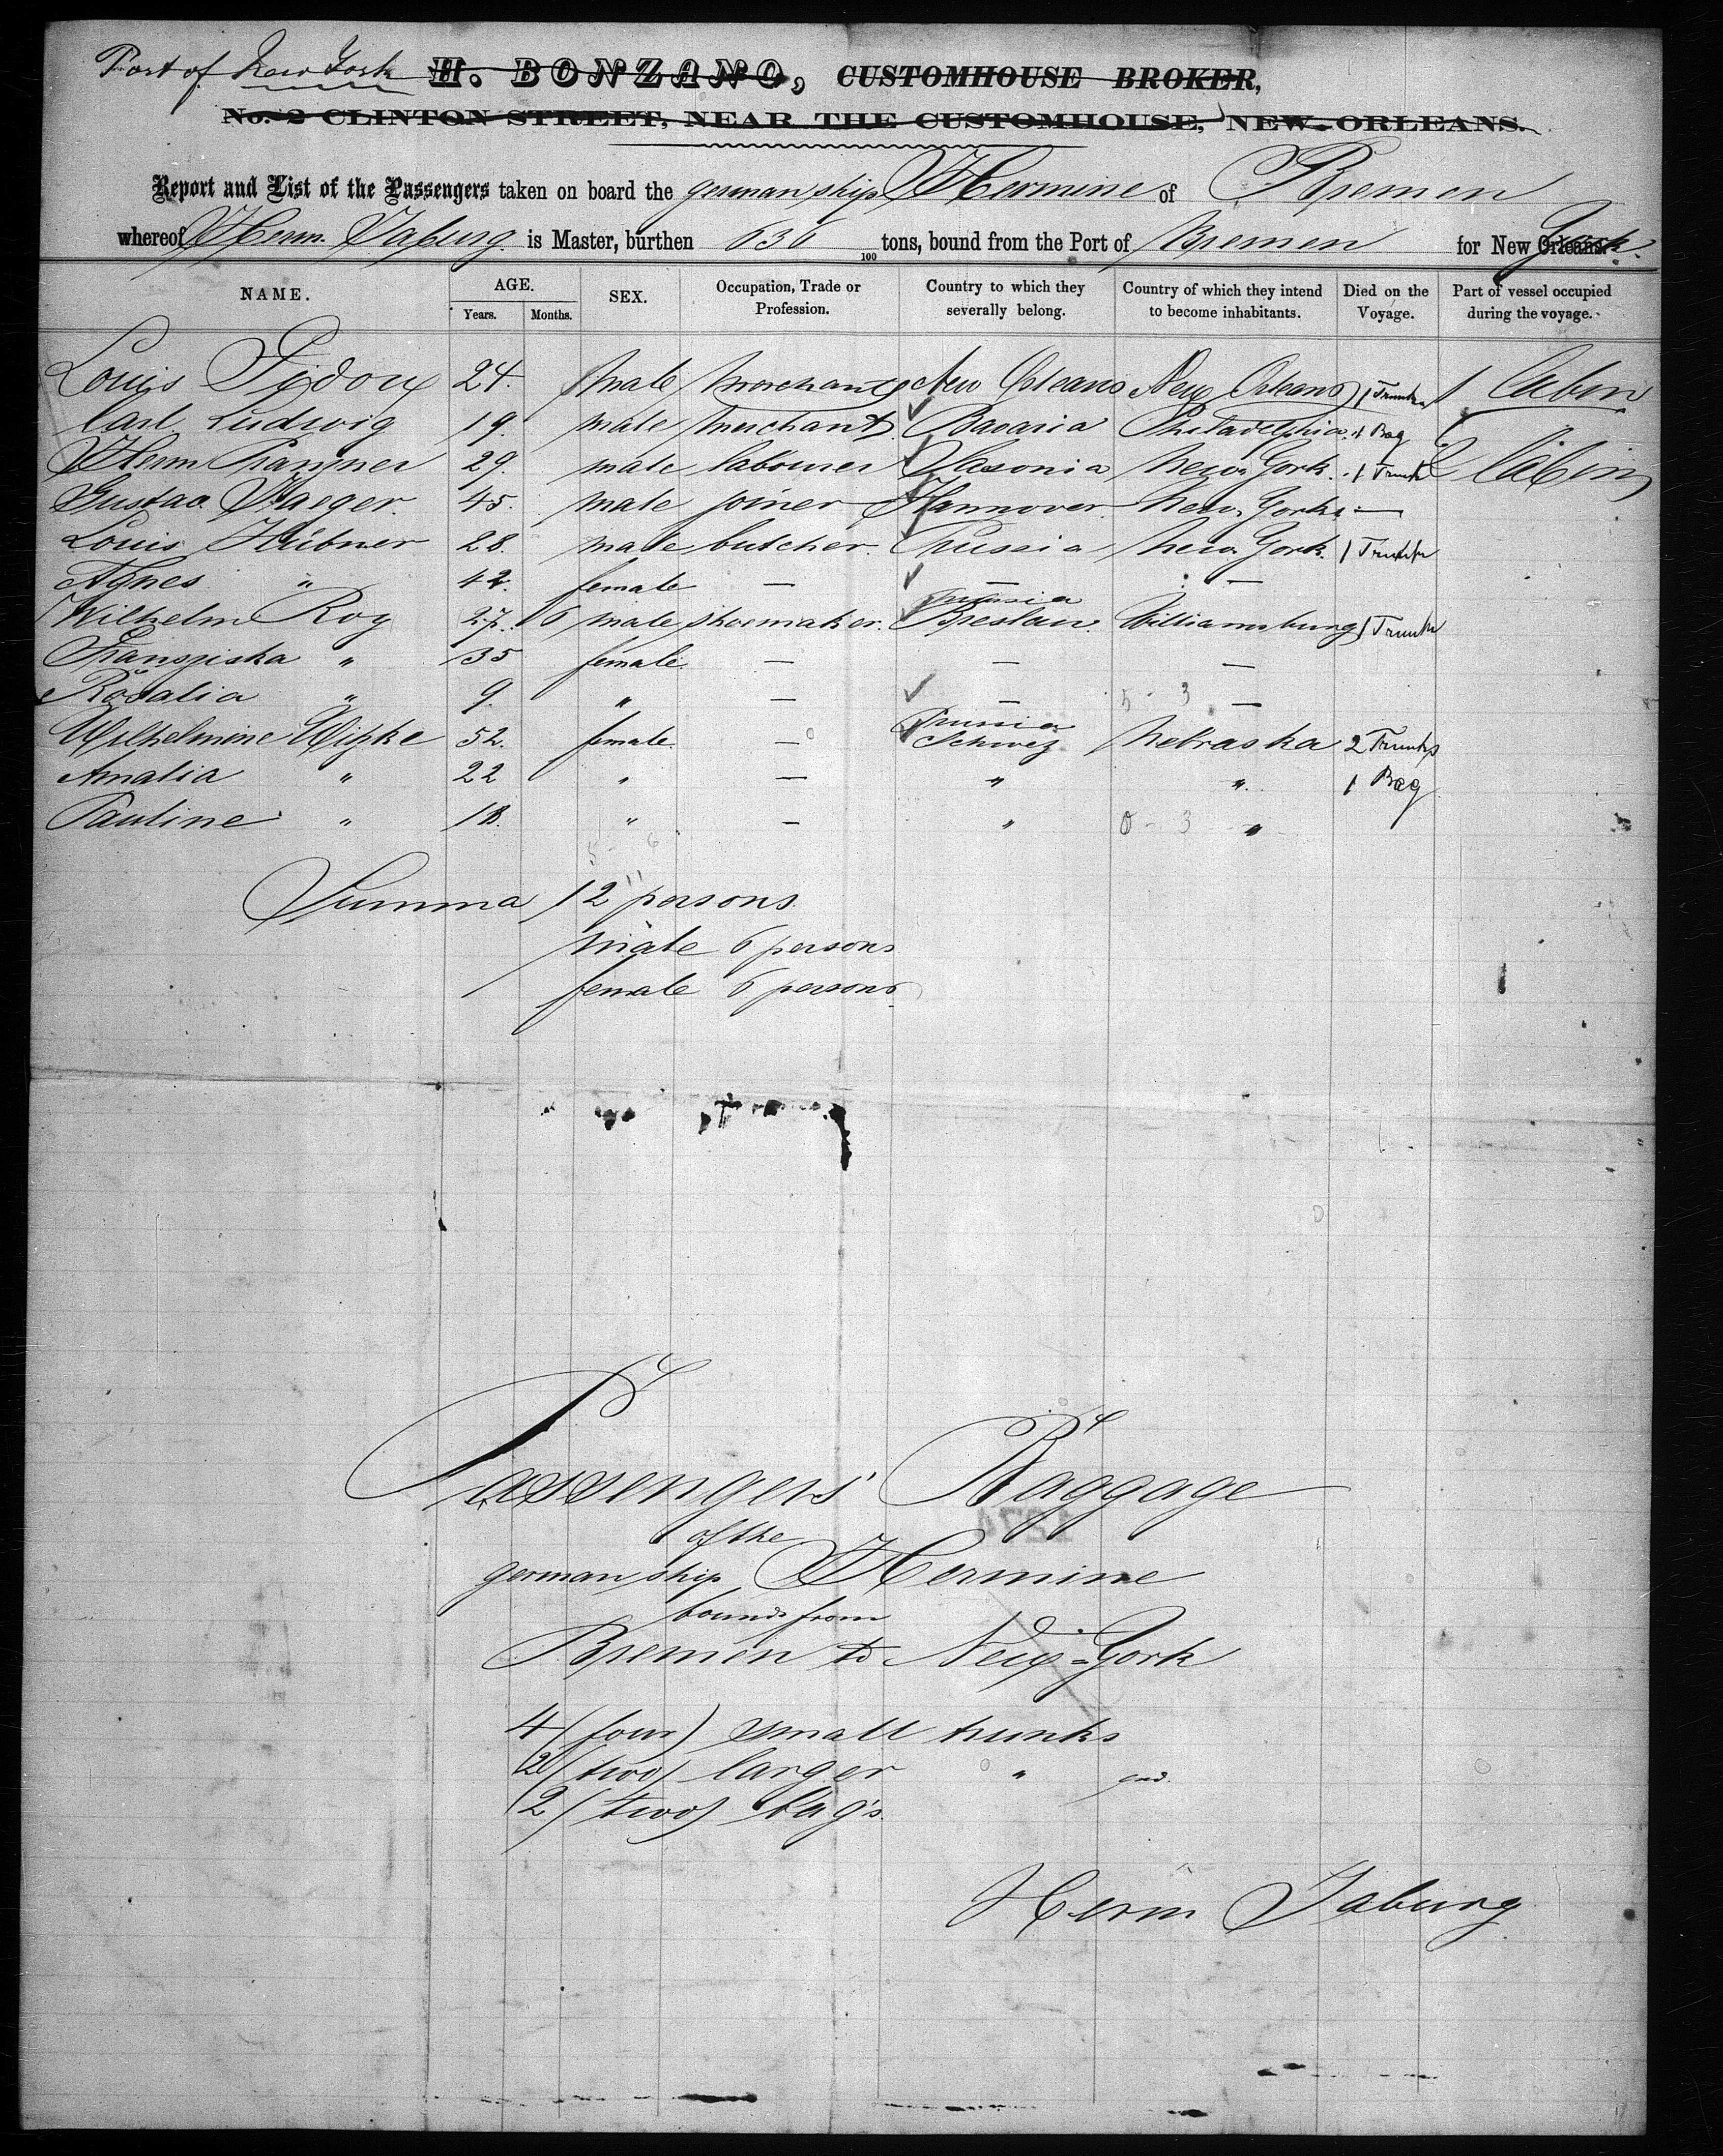 Port of New York H. BONZANO, CUSTOMHOUSE BROKER,
No. 2 CLINTON STREET, NEAR THE CUSTOMHOUSE, NEW-ORLEANS.
Report and List of the Passengers taken on board the german ship Hermine of Bremen
whereof Herm. Jaburg is Master, burthen 636 100 tons, bound from the Port of Bremen for New Orleans. York.
NAME. AGE. SEX. Occupation, Trade or Profession. Country to which they severally belong. Country of which they intend to become inhabitants. Died on the Voyage. Part of vessel occupied during the voyage.
Years. Months.
Louis 24. male merchant New Orleans New Orleans 1 Trunk 1 Cabin
Carl Ludwig 19. male merchant Bavaria Philadelphia 1 Bag
Herm 29. male labourer Saxonia New York. 1 Trunk 2 Cabin
Gustav Jaeger. 45. male joiner Hannover. New York. —
Louis Hübner 28. male butcher. Prussia New York. 1 Trunk
Agnes " 42. female — — —
Wilhelm Roy 27. 6 male shoemaker. Prussia Breslau. Williamsburg 1 Trunk
Fransziska " 35 female. — — —
Rosalia " 9. " — — 5 - 3 —
Wilhelmine 52. female. — Prussia Schwez Nebraska 2 Trunks
Amalia " 22 " — " " 1 Bag
Pauline " 18. " — " 0 - 3 "
5 - 6
Summa 12 persons
male 6 persons
female 6 persons
Passengers' Baggage
of the
german ship Hermine
bound from
Bremen to New-York
4 (four) small trunks
2 (two) larger " and
2 (two) bag's.
Herm Jaburg